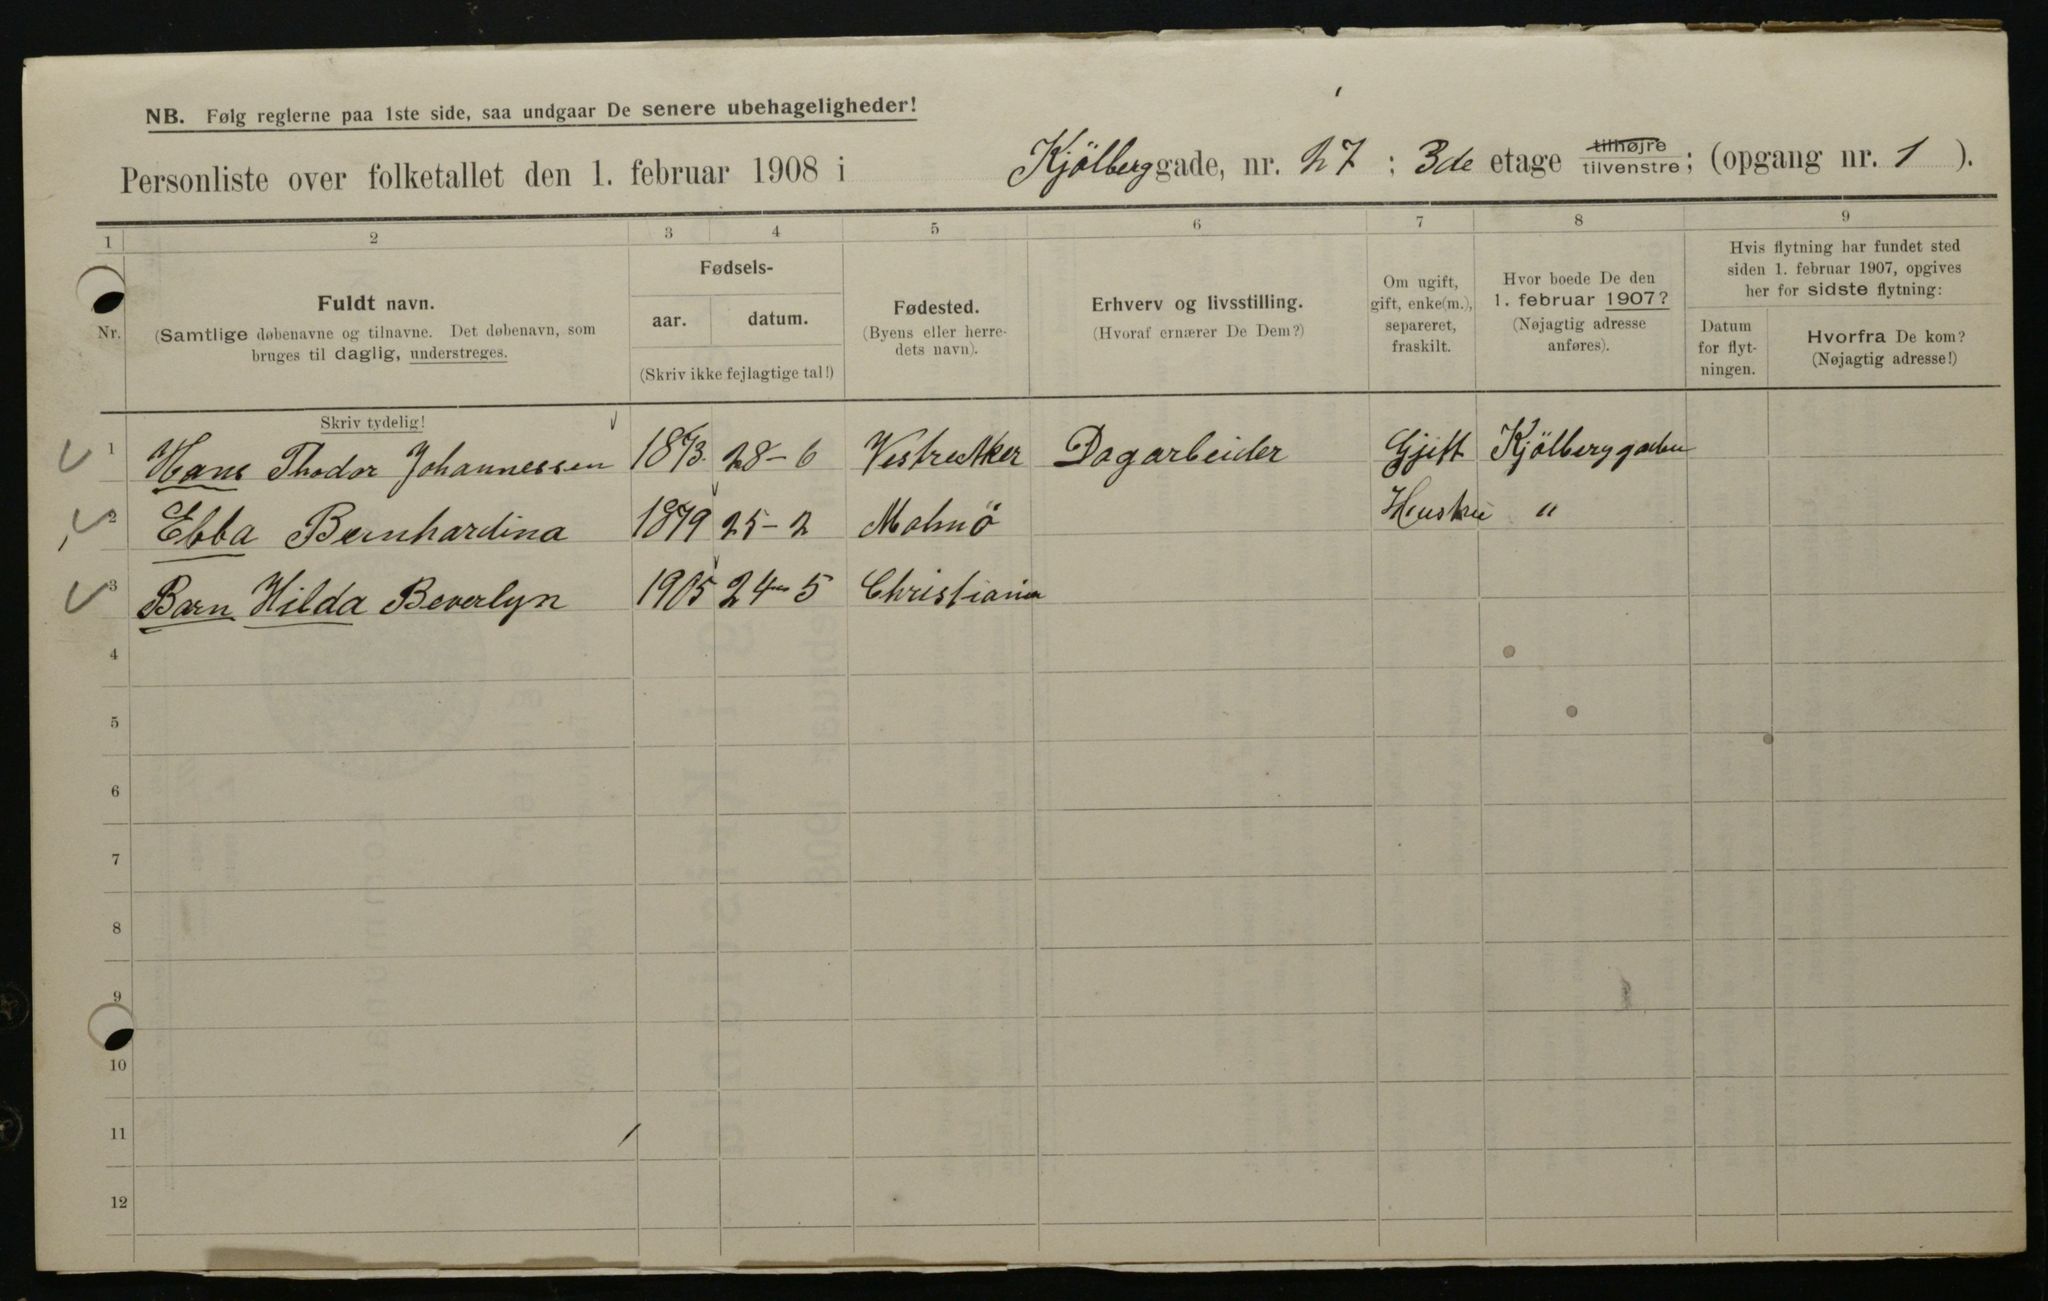 NB. Følg reglerne paa 1ste side, saa undgaar De senere ubehageligheder!
Personliste over folketallet den 1. februar 1908 i Kjölberggade, nr. 27 : 3de etage tilhøjre tilvenstre; (opgang nr. 1 ).
1 2 3 4 5 6 7 8 9
Nr.
Fuldt navn.
(Samtlige døbenavne og tilnavne. Det døbenavn, som
bruges til daglig, understreges.
Skriv tydelig!
Fødsels-
aar. datum.
(Skriv ikke fejlagtige tal!)
Fødested.
(Byens eller herre-
dets navn).
Erhverv og livsstilling.
(Hvoraf ernærer De Dem?)
Om ugift,
gift, enke(m.),
separeret,
fraskilt.
Hvor boede De den
1. februar 1907?
(Nøjagtig adresse
anføres).
Hvis flytning har fundet sted
siden 1. februar 1907, opgives
her for sidste flytning:
Datum
for flyt-
ningen.
Hvorfra De kom?
(Nøjagtig adresse!)
1 Hans Thodor Johannessen 1873. 28-6 Vestre Aker Dagarbeider Gjift Kjölberggaden
2 Ebba Bernhardina 1879 25-2 Malmö Hustru "
3 Barn Hilda Beverlyn 1905 24-5 Christiania
4
5
6
7
8
9
10
11
12